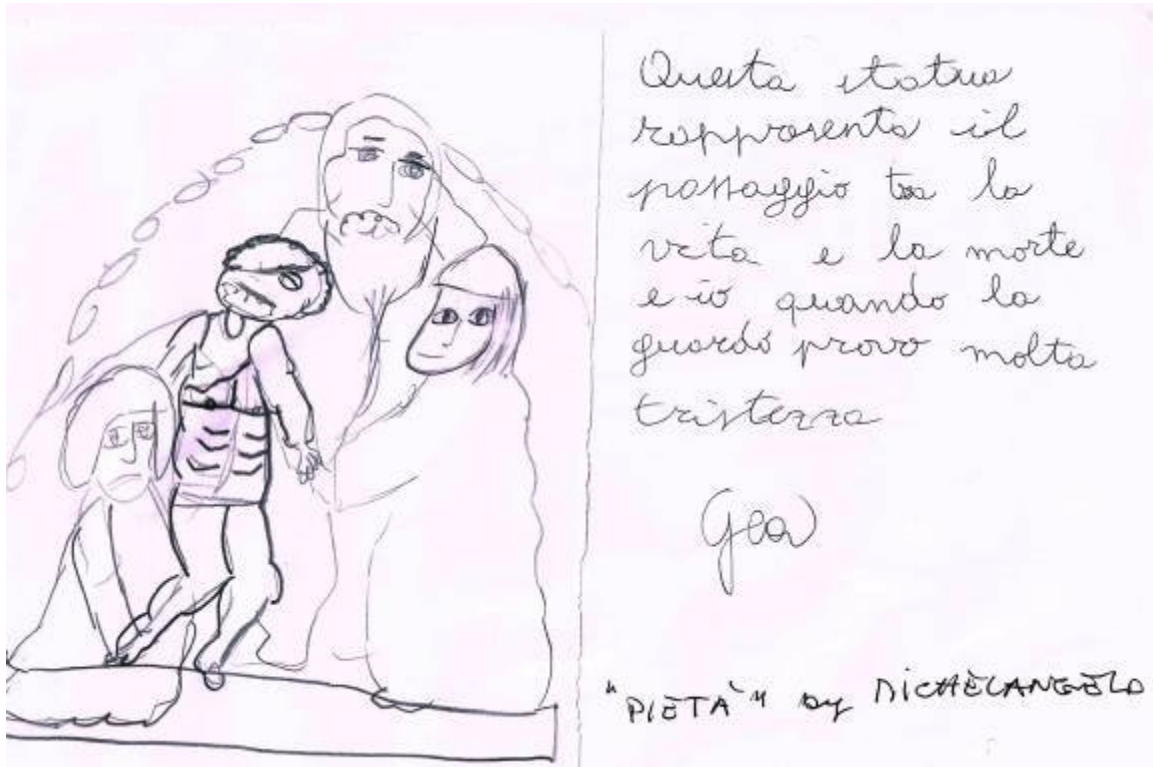 Questa statua
rapprosenta il
passaggio tra la
vita e la morte
e io quando la
guardo provo molta
tristezza
Gea
"PIETÀ" by MICHELANGELO